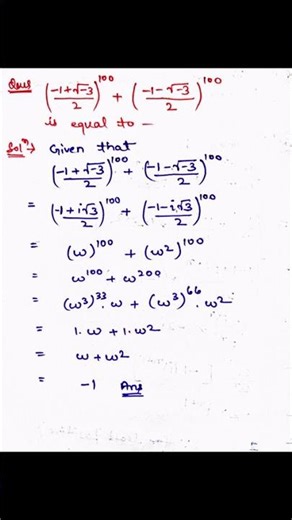 Ques ((-1+√-3)/2)^100 + ((-1-√-3)/2)^100
is equal to –
Solⁿ→ Given that
((-1+√-3)/2)^100 + ((-1-√-3)/2)^100
= ((-1+i√3)/2)^100 + ((-1-i√3)/2)^100
= (ω)^100 + (ω²)^100
= ω^100 + ω^200
= (ω³)^33 . ω + (ω³)^66 . ω²
= 1. ω + 1. ω²
= ω + ω²
= -1 Ans